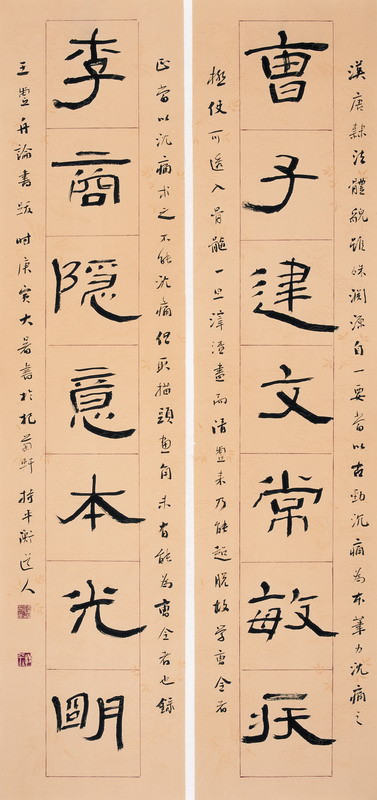 漢唐隸法體貌雖殊淵源自一要當以古勁沉痛為本筆力沉痛之
曹子建文常敏疾
極使可透入骨髓一旦滓渣盡而清虛来乃能超脫故學曹全者
正當以沉痛求之不能沉痛但取描頭畫角未有能為曹全者也錄
李商隱意本光朙
王虛舟論書跋時庚寅大暑書於把菊軒 半衡道人